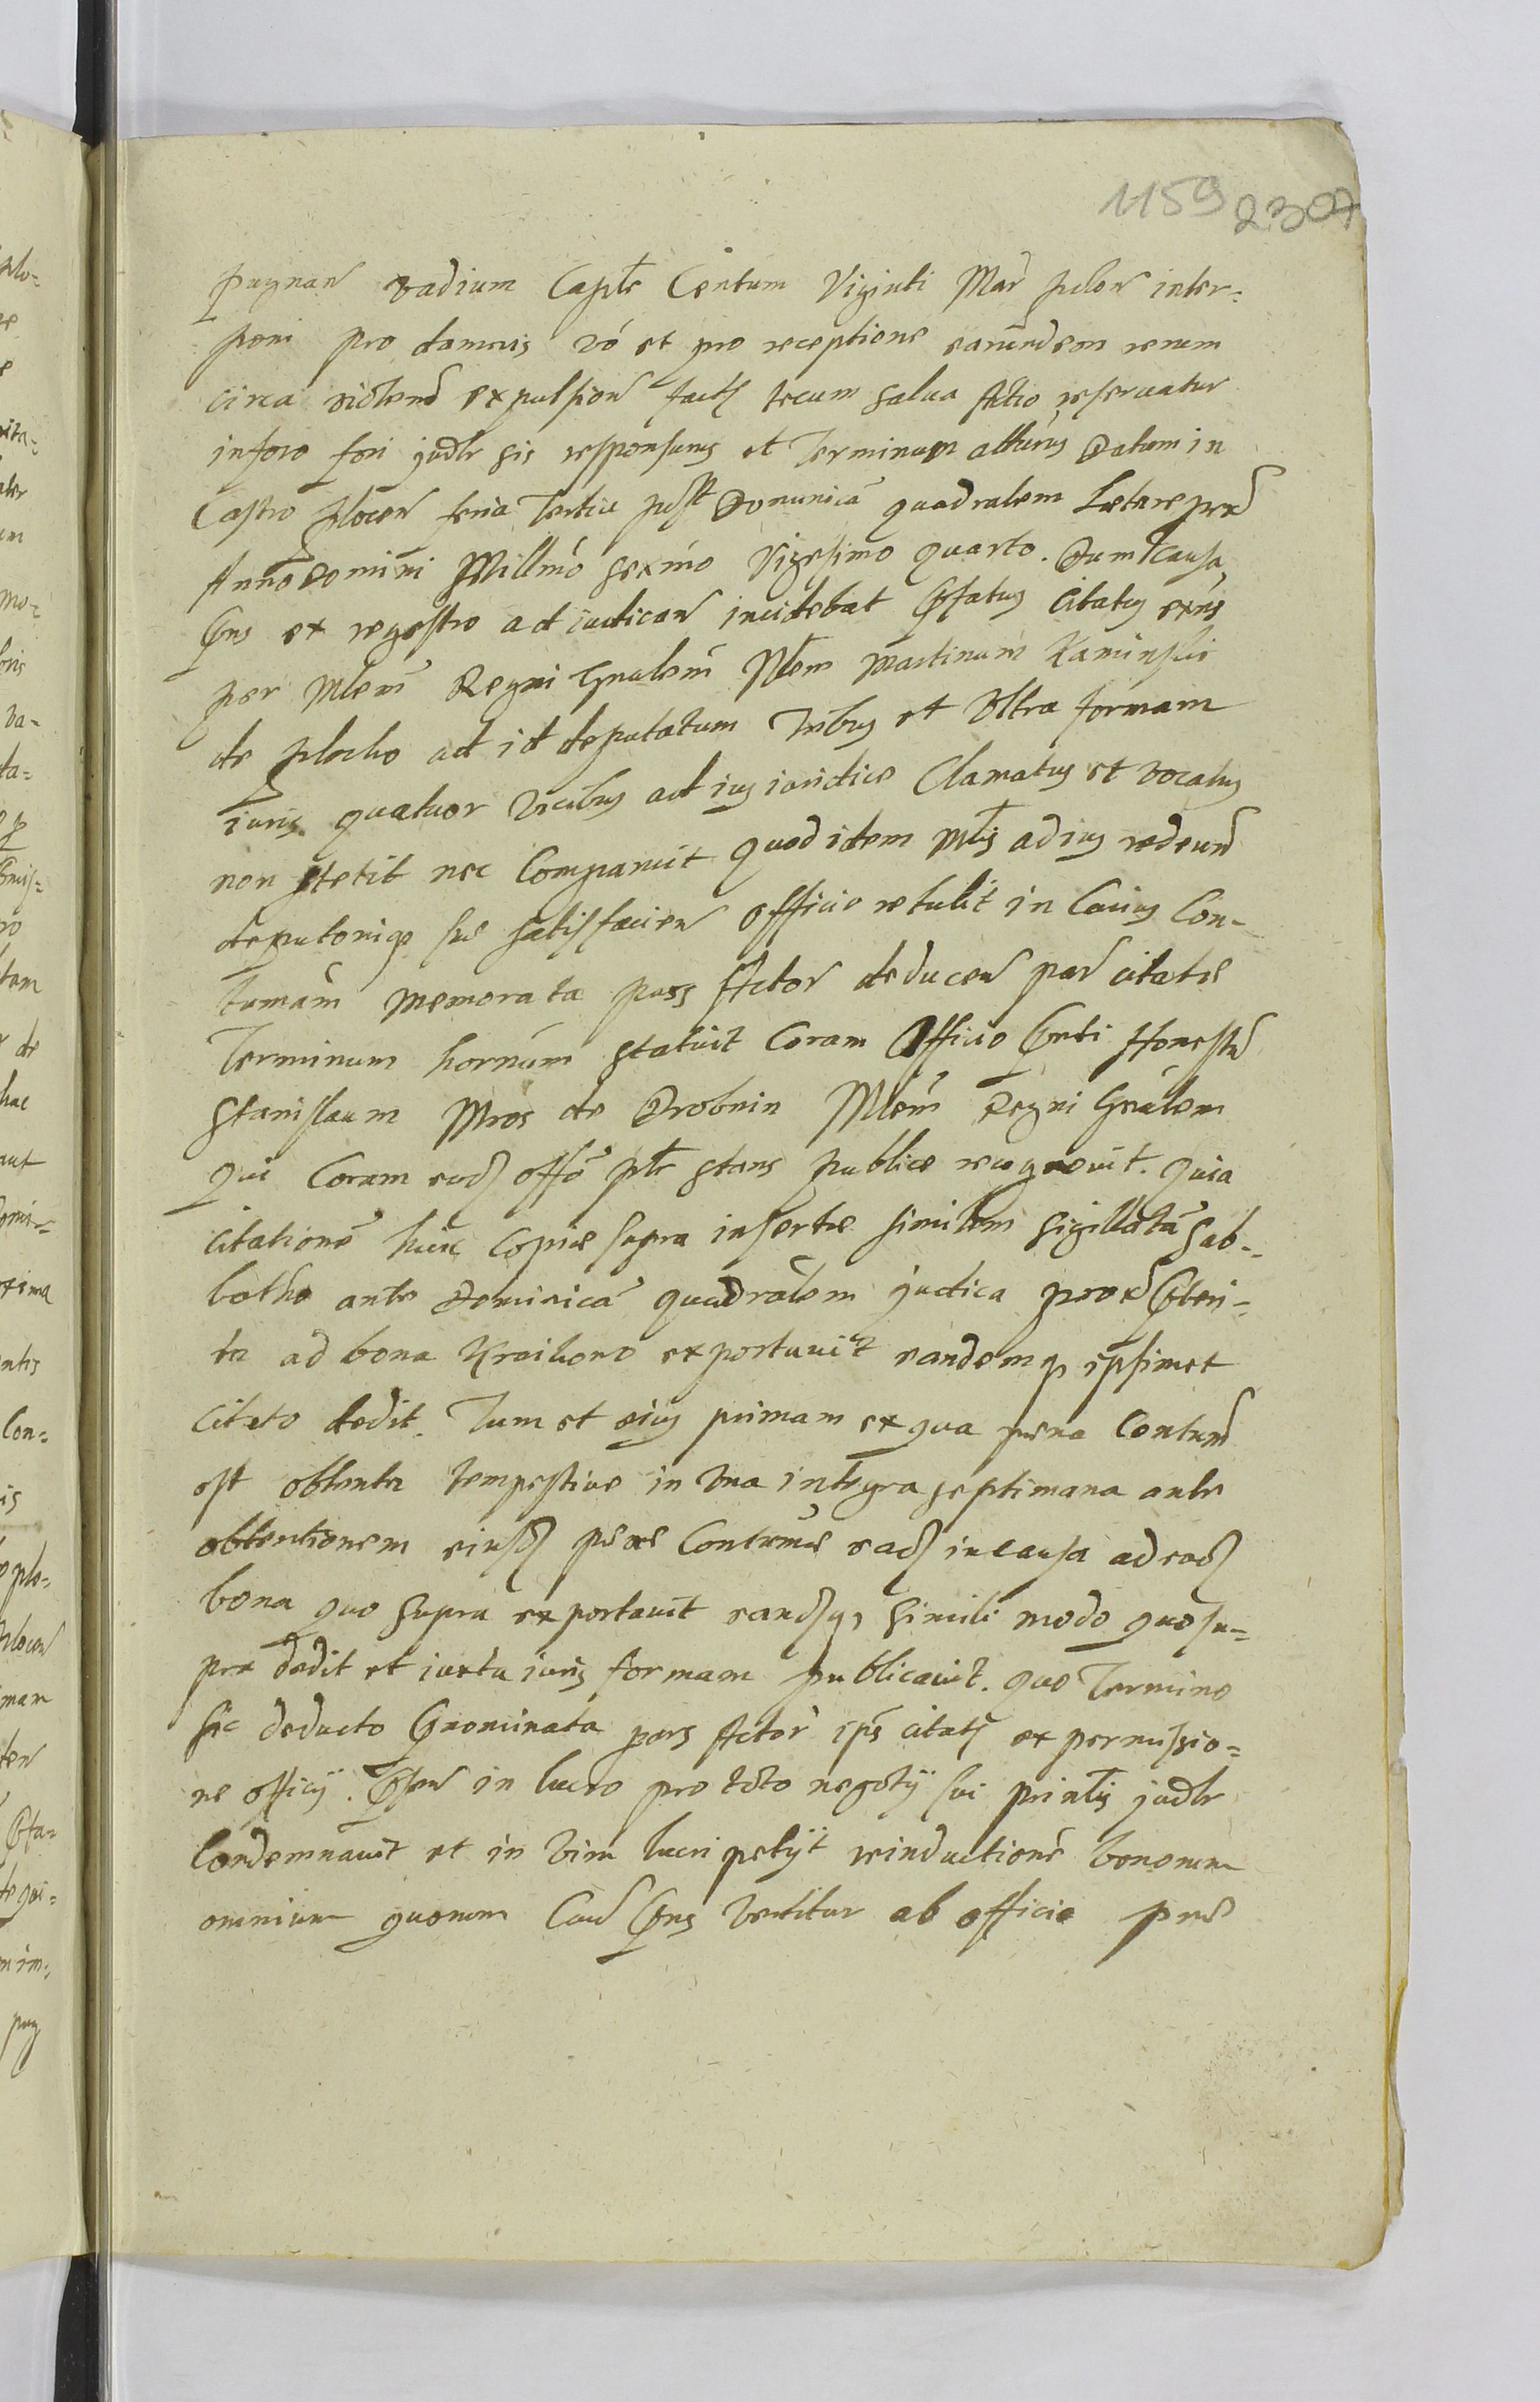 1159 2307
pugnan vadium Caple Centum Viginti Mar polon inter-
poni pro damnis vo et pro receptione earundem rerum
circa violend expulsion facts tecum salua Actio reseruatur
inforo fori judle sis responsurus et Terminum atturus Datum in
Castro plocen feria Tertia post Dominica quadralem Laetare prox
Anno Domini Millmo sexmo Vigesimo quarto. Dum causa
pns ex regestro ad iudican incidebat pfatus Citatus exns
per Mlem Regni Gnalem Nlem Martinum Kaminski
de plocko ad id deputatum Tribus et Vltra formam
iuris quatuor Vicibus ad ius iuridice Clamatus et vocatus
non stetit nec Comparuit quod idem Mlis ad ius redeund
deputoniqz sue satisfacien officio retulit in Cuius Con-
tumam memorata pars Actor deducen par citatae
Terminum hornum statuit Coram Officio pnti Honestu
Stanislaum Mros de Drobnin Mlem Regni Gnalem
Qui Coram eod offo plr stans publice recognouit. Quia
citatione huic Copiae supra insertae similem sigillata Sab-
batho ante Dominica quadralem judica prox pteri-
ta ad bona Kraikowo exportauit eandemqz ipsimet
citato dedit. Tum et eius primam ex qua poena Contum
est obtenta tempestiue in Vna integra septimana ante
obtentionem eiusd poenae Contumae ead in causa ad ead
bona quo supra exportauit eandqz simili modo quo su-
pra dedit et iuxta iuris formam publicauit. Quo Termino
sic deducto pnominata pars Actor ips citats ex permissio-
ne officij. in lucro pro toto negotij sui printis judle
Condemnauit et in Vim lucri petijt reinductione bonorum
omnium quorum Cau pns Vertitur ab officio pnt